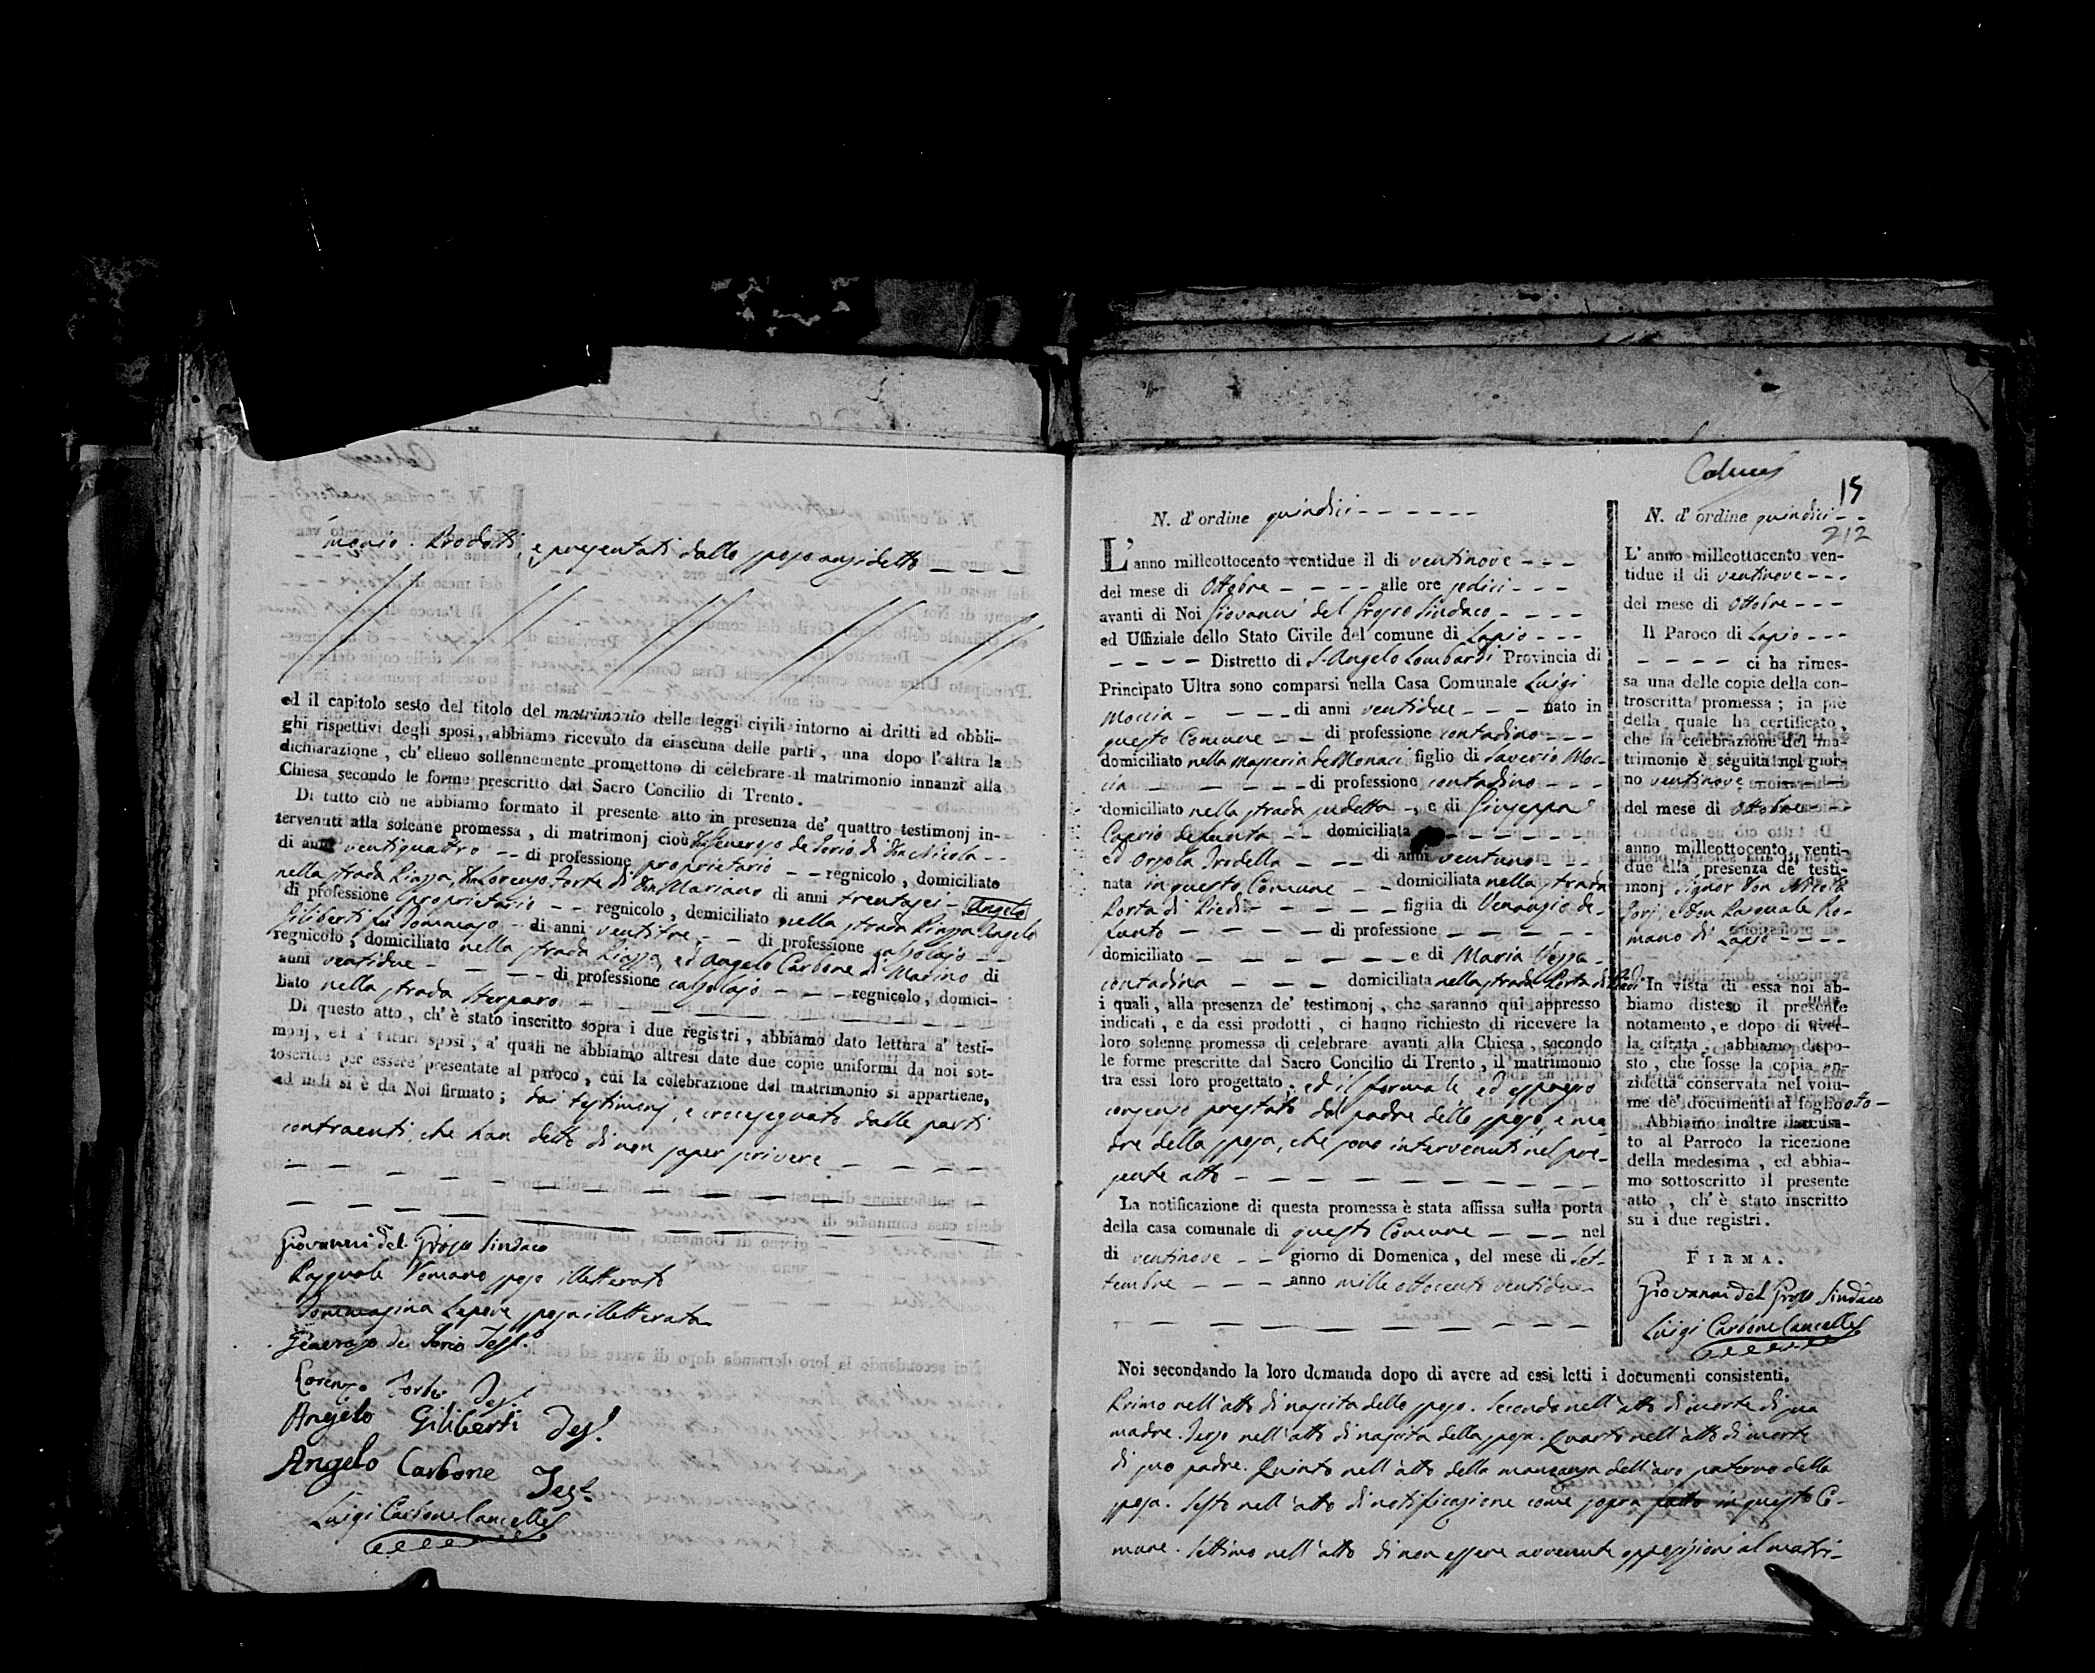 monio. Prodotti, e presentati dallo sposo anzidetto
ed il capitolo sesto del titolo del matrimonio delle leggi civili intorno ai dritti ed obbli-
ghi rispettivi degli sposi, abbiamo ricevuto da ciascuna delle parti, una dopo l'altra la
dichiarazione, ch' elleno sollennemente promettono di celebrare il matrimonio innanzi alla
Chiesa secondo le forme prescritto dal Sacro Concilio di Trento.
Di tutto ciò ne abbiamo formato il presente atto in presenza de' quattro testimonj in-
tervenuti alla solenne promessa, di matrimonj cioè Don Generoso de Iorio di Don Nicola - -
di anni ventiquattro - - di professione proprietario - - regnicolo, domiciliato
nella strada Piazza, Don Lorenzo Forte di Don Mariano di anni trentasei - Angelo
di professione proprietario - - regnicolo, domiciliato nella strada Piazza Angelo
Giliberti fu Tommaso - di anni ventitre - - di professione calzolajo - -
regnicolo, domiciliato nella strada Piazza, ed Angelo Carbone di Marino di
anni ventidue - - - - di professione calzolajo - - - regnicolo, domici-
liato nella strada Sterparo
Di questo atto, ch' è stato inscritto sopra i due registri, abbiamo dato lettura a' testi-
monj, ed a' futuri sposi, a' quali ne abbiamo altresì date due copie uniformi da noi sot-
toscritte per essere presentate al paroco, cui la celebrazione del matrimonio si appartiene,
ed indi si è da Noi firmato; dai testimonj, e crocesegnato dalle parti
contraenti, che han detto di non saper scrivere
Giovanni del Grosso Sindaco
Pasquale Romano sposo illetterato
Tommasina Lepore sposa illetterata
Generoso de Iorio Test.o
Lorenzo Forte Tes.
Angelo Giliberti Tes.
Angelo Carbone Test.
Luigi Carbone Cancelle
15
N. d' ordine quindici - - - - - -
L' anno milleottocento ventidue il di ventinove - - -
del mese di Ottobre - - - - - alle ore sedici - - -
avanti di Noi Giovanni del Grosso Sindaco - - - -
ed Uffiziale dello Stato Civile del comune di Lapio - - -
- - - - Distretto di S. Angelo Lombardi Provincia di
Principato Ultra sono comparsi nella Casa Comunale Luigi
Moccia - - - - di anni ventidue - - - nato in
questo Comune - - di professione contadino - - -
domiciliato nella masseria de Monaci figlio di Saverio Moc-
cia - - - - - - di professione contadino - - -
domiciliato nella strada sudetta -, e di Giuseppa
Caprio defunta - - domiciliata - - - - - -
ed Orsola Trodella - - - di anni ventuno - - -
nata in questo Comune - - domiciliata nella strada
Porta di Piedi - - - - - - figlia di Venanzio de-
funto - - - - - di professione - - - - - -
domiciliato - - - - - - e di Maria Vessa -
contadina - - - domiciliata nella strada Porta di Piedi
i quali, alla presenza de' testimonj, che saranno quì appresso
indicati, e da essi prodotti, ci hanno richiesto di ricevere la
loro solenne promessa di celebrare avanti alla Chiesa, secondo
le forme prescritte dal Sacro Concilio di Trento, il matrimonio
tra essi loro progettato; ed il formale, ed espresso
consenso prestato dal padre dello sposo, e ma-
dre della sposa, che sono intervenuti nel pre-
sente atto - - - - - - - - - -
La notificazione di questa promessa è stata affissa sulla porta
della casa comunale di questo Comune - - - nel
di ventinove - - giorno di Domenica, del mese di Set-
tembre - - - - anno mille ottocento ventidue -
Noi secondando la loro domanda dopo di avere ad essi letti i documenti consistenti.
Primo nell'atto di nascita dello sposo. Secondo nell'atto di morte di sua
madre. Terzo nell'atto di nascita della sposa. Quarto nell'atto di morte
di suo padre. Quinto nell'atto della mancanza dell'avo paterno della
sposa. Sesto nell'atto di notificazione come sopra fatto in questo Co-
mune. Settimo nell'atto di non essere avvenute opposizioni al matri-
N. d' ordine quindici - -
212
L' anno milleottocento ven-
tidue il di ventinove - - -
del mese di Ottobre - - -
Il Paroco di Lapio - - -
- - - - ci ha rimes-
sa una delle copie della con-
troscritta promessa; in piè
della quale ha certificato,
che la celebrazione del ma-
trimonio è seguita nel gior-
no ventinove - - - -
del mese di Ottobre - - -
anno milleottocento venti-
due alla presenza de' testi-
monj Signor Don Nicola
Iorj, e Don Pasquale Ro-
mano di Lapio - - - -
In vista di essa noi ab-
biamo disteso il presente
notamento, e dopo di aver-
la cifrata, abbiamo dispo-
sto, che fosse la copia an-
zidetta conservata nel volu-
me de' documenti al foglio otto -
Abbiamo inoltre accusa-
to al Parroco la ricezione
della medesima, ed abbia-
mo sottoscritto il presente
atto, ch' è stato inscritto
su i due registri.
FIRMA.
Giovanni del Grosso Sindaco
Luigi Carbone Cancelle